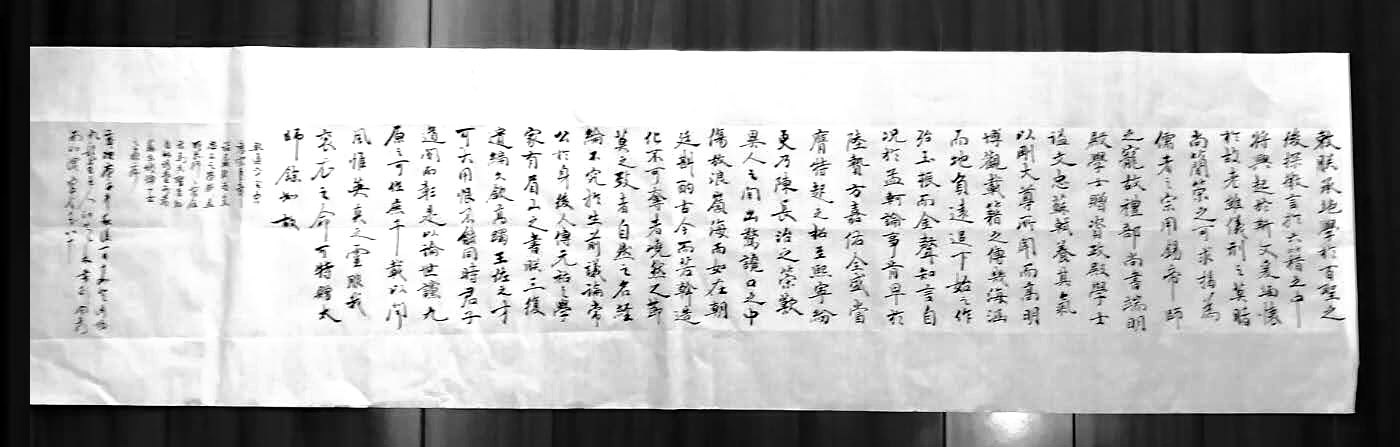 敕朕承絶學於百聖之
後探微言於六籍之中
將興起於斯文爰緬懷
於故老雖儀刑之莫睹
尚簡策之可求揭為
儒者之宗用錫帝師
之寵故禮部尚書端明
殿學士贈資政殿學士
諡文忠蘇軾養其氣
以剛大尊所聞而高明
博觀載籍之傳幾海涵
而地負遠追正始之作
殆玉振而金聲知言自
況於孟軻論事肯卑於
陸贄方嘉祐全盛嘗
膺特起之招至熙寧紛
更乃陳長治之策歎
異人之間出驚讒口之中
傷放浪嶺海而如在朝
廷斟酌古今而若斡造
化不可奪者嶢然之節
莫之致者自然之名經
綸不究於生前議論常
公於身後人傳元祐之學
家有眉山之書朕三復
遺編久欽高躅王佐之才
可大用恨不能同時君子
道闇而彰是以論世讜九
原之可作庶千載以聞
風惟英爽之靈服我
衮衣之命可特贈太
師餘如故